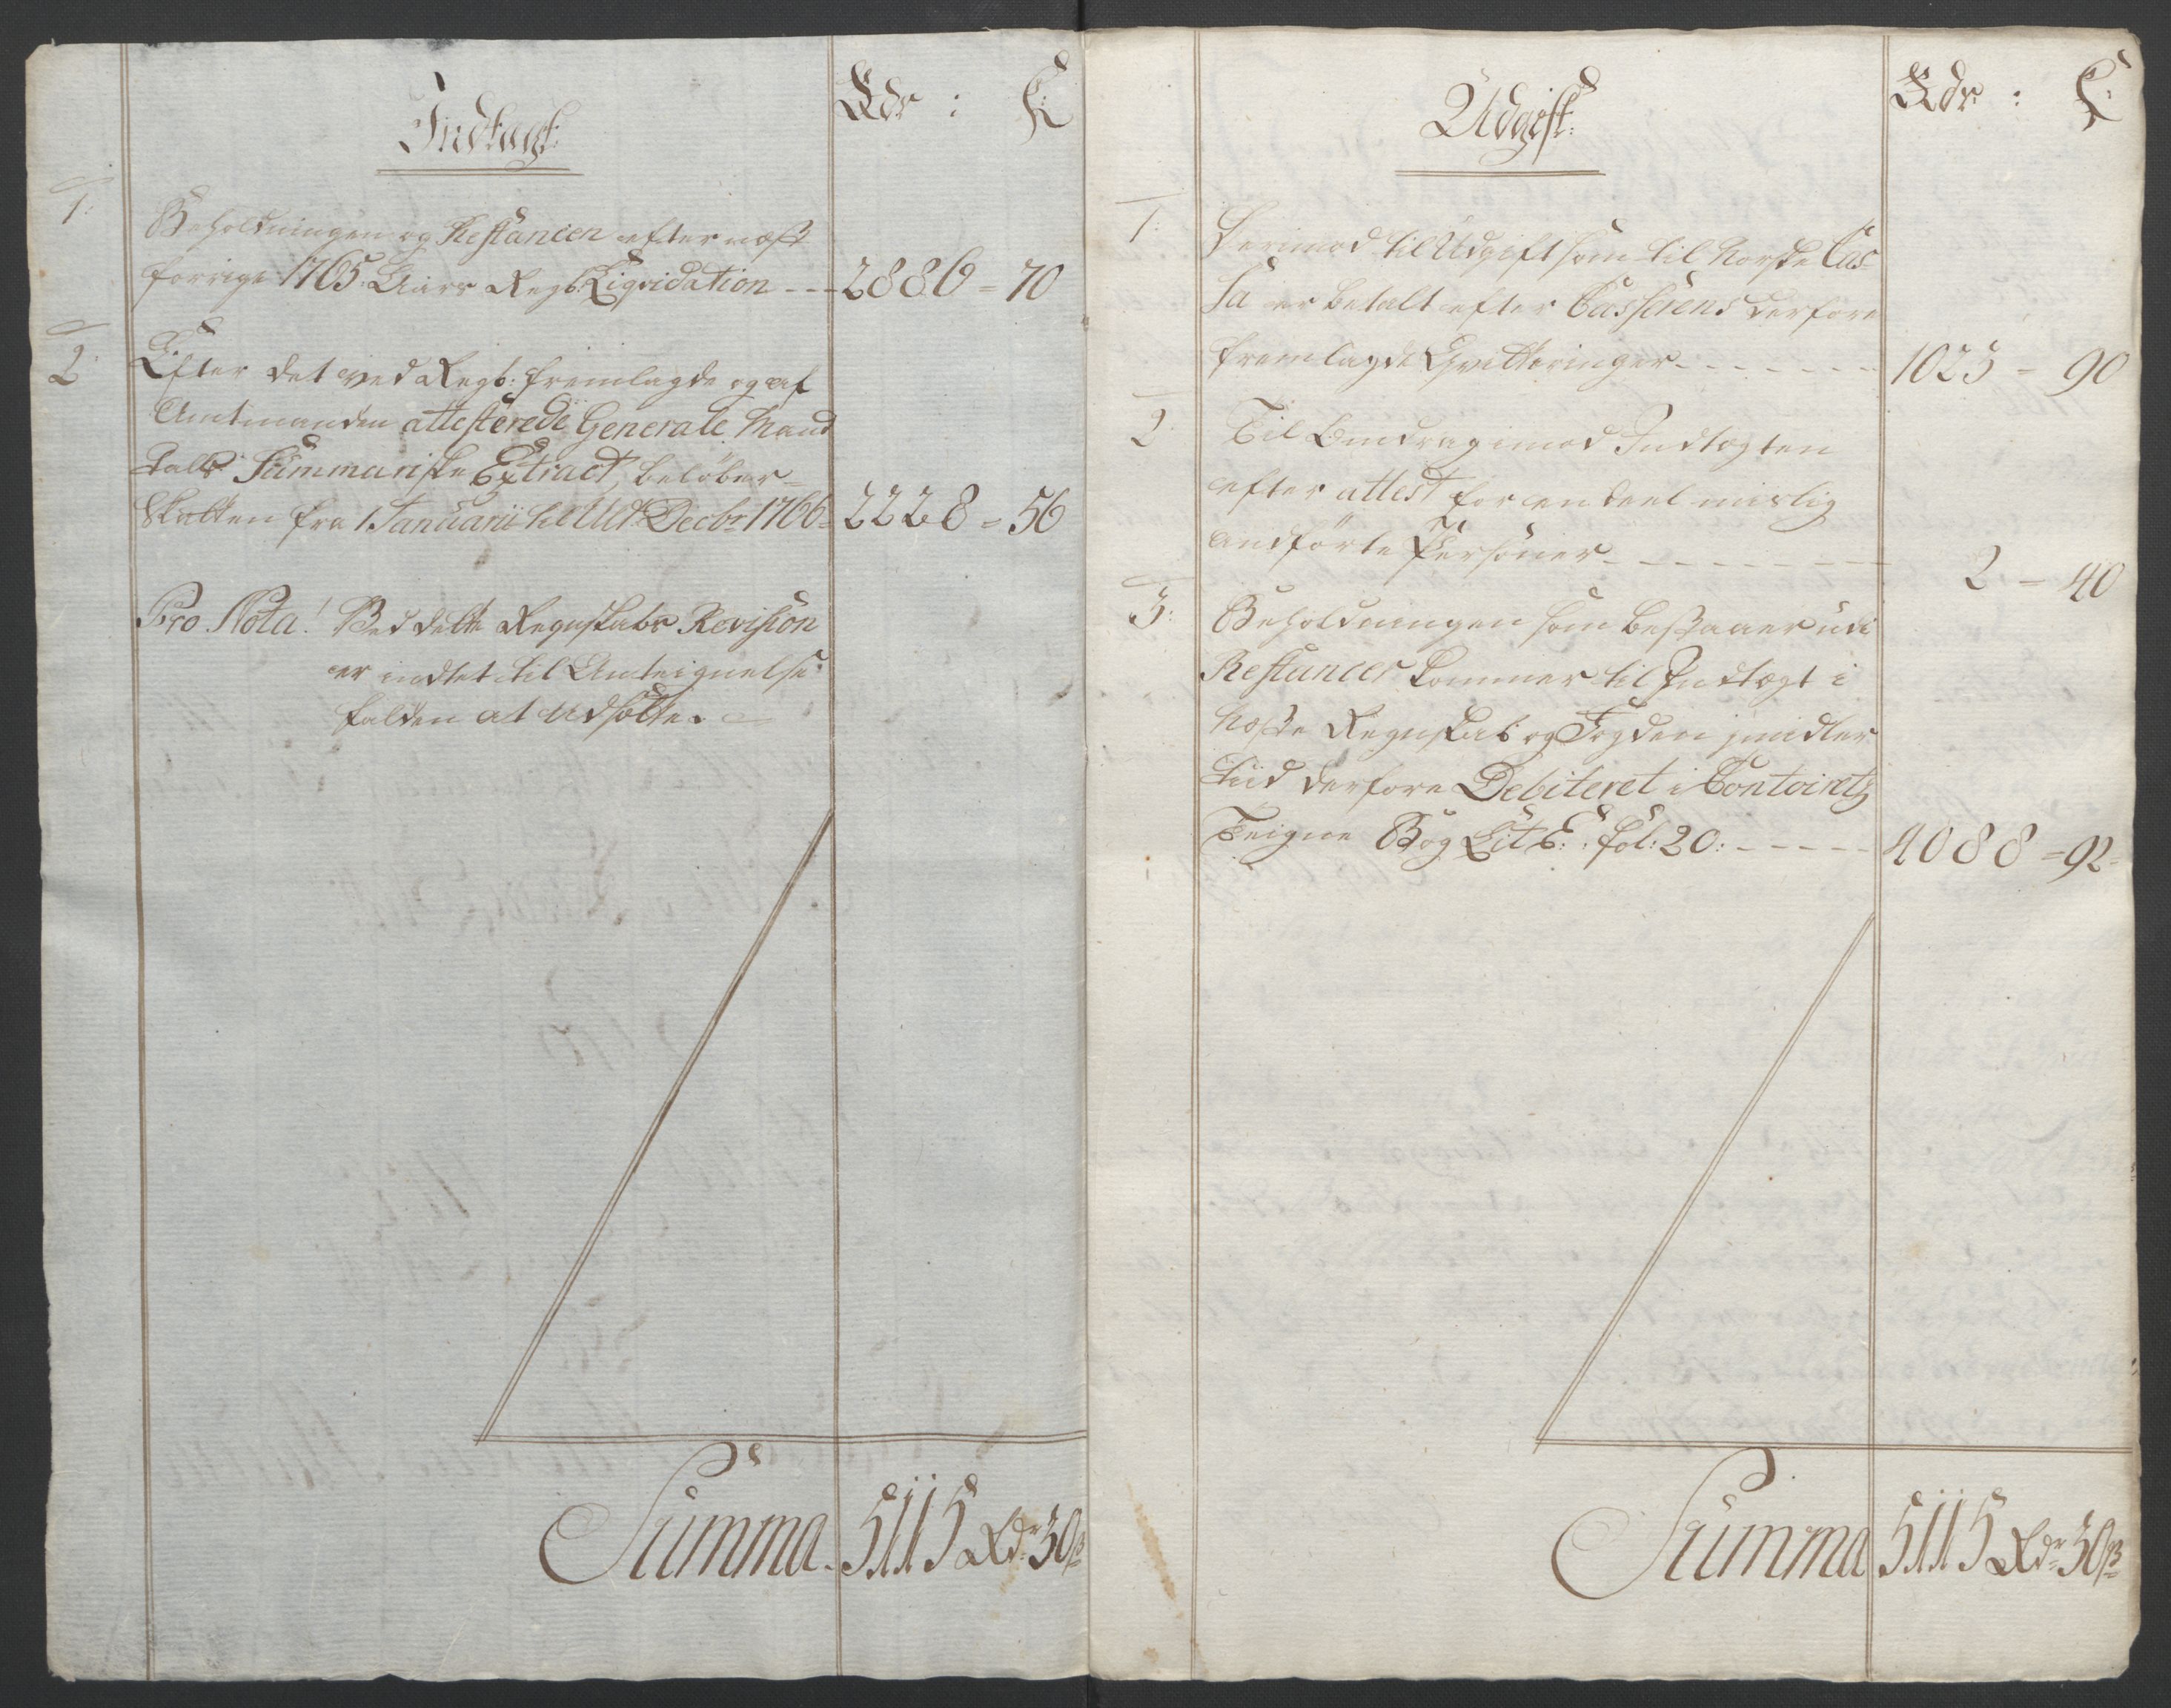 Indtægt:
Rdr : ẞ
1:
Beholdningen og Restancen efter næst
forrige 1765 Aars Regb: Liqvidation --- 2886 = 70
2:
Efter det ved Regb: fremlagde og af
Amtmanden attesterede Generale Mand
talls Summariske Extract, beløber
Skatten fra 1 Januarii til Ult: Decbr 1766 = 2228 = 56
Pro Nota! Ved dette Regnskabs Revision
er indtet til Anteignelse
falden at udsætte.
Summa. 5115 Rdr 30 ß
Udgift:
Rdr : ẞ
1:
Derimod til Udgift som til Norske Cas-
sa er betalt efter Casserens derfore
fremlagde Qvitteringer ------- 1023 - 90
2:
Til Omdrag imod Indtægten
efter attest for en deel urislig
andførte Persohner ------- 2 - 40
3:
Beholdningen som bestaaer udi
Restancer kommer til Indtægt i
næste Regnskab og Fogden imidler
tiid derfore Debiteret i Contoirets
Teigne Bog Lit: E: fol: 20: ----- 4088 = 92
Summa 5115 Rdr 30 ß